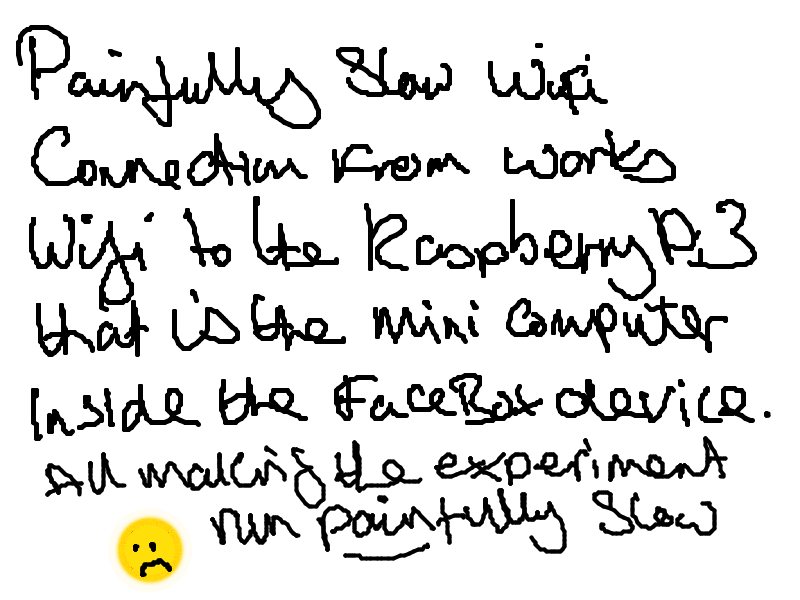 Painfully Slow Wifi
Connection from works
Wifi to the Raspberry Pi 3
that is the mini computer
Inside the FaceBox device.
All making the experiment
run painfully slow